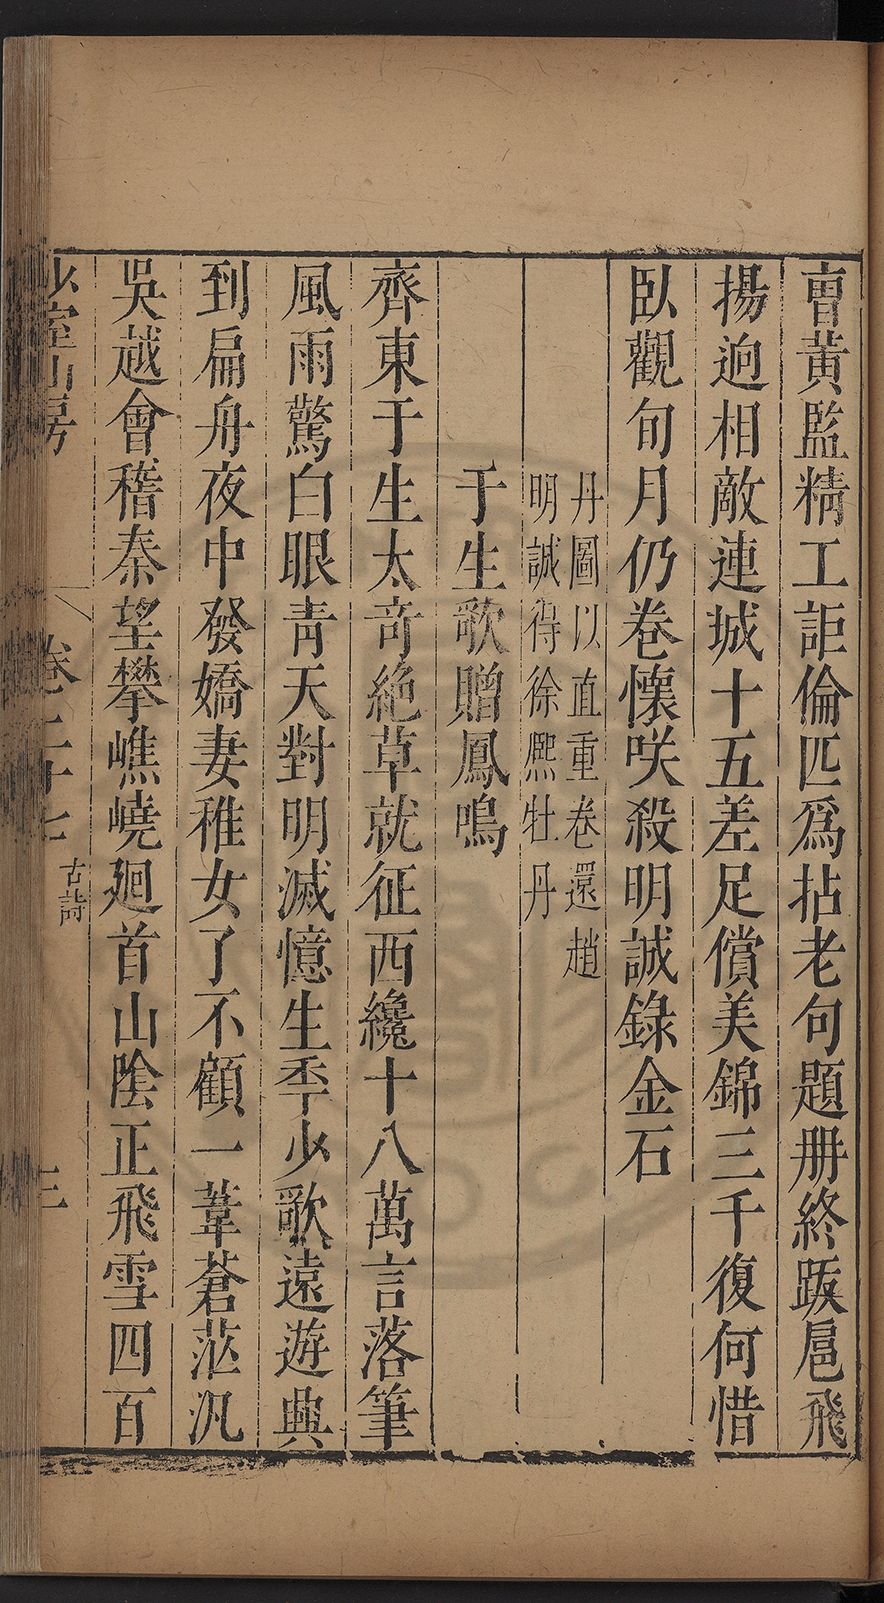 曺黄監精工詎倫匹爲拈老句題册終跋扈飛
揚逈相敵連城十五差足償美錦三千復何惜
臥觀旬月仍卷懷咲殺明誠錄金石
丹圖以直重卷還趙
明誠得徐熈牡丹
于生歌贈鳳鳴
齊東于生太奇絶草就征西纔十八萬言落筆
風雨驚白眼青天對明滅憶生季少歌遠遊興
到扁舟夜中發嬌妻稚女了不顧一葦蒼茫汎
吳越會稽秦望攀嶕嶢廻首山陰正飛雪四百
少室山房
卷二十七
古詩
三